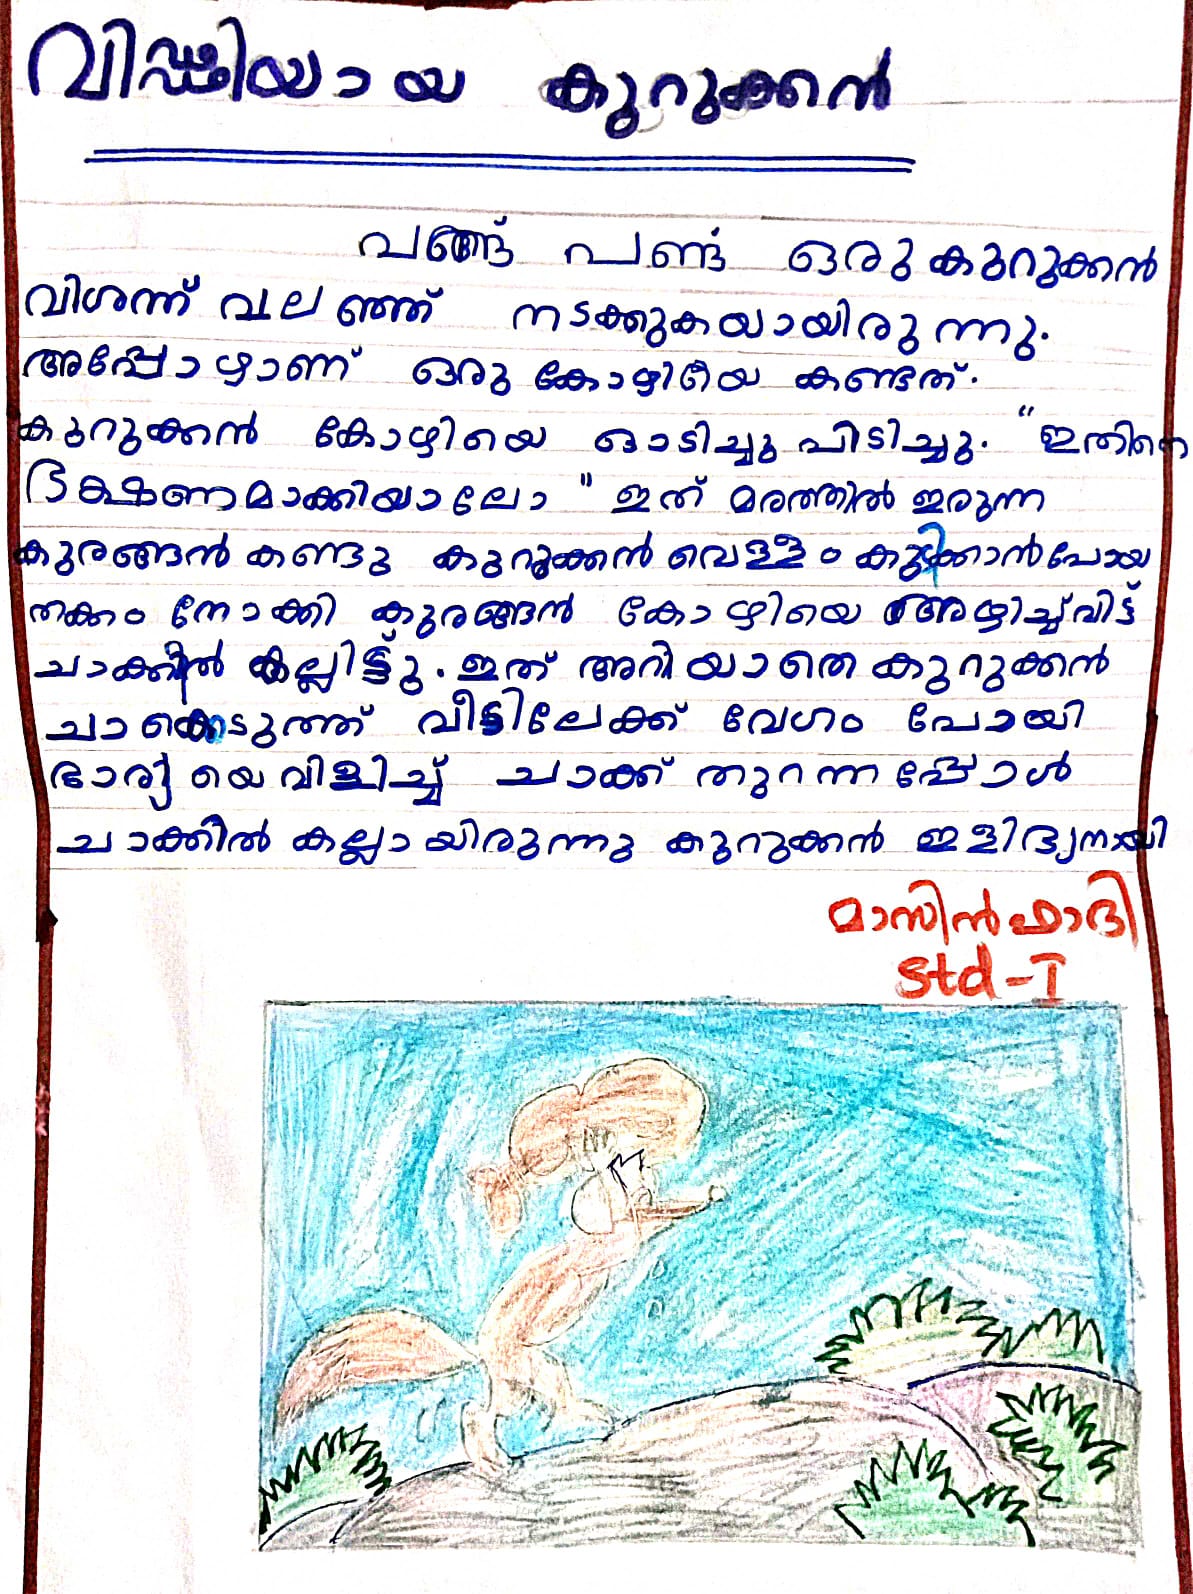 വിഢ്ഢിയായ കുറുക്കൻ
പണ്ട് പണ്ട് ഒരു കുറുക്കൻ
വിശന്ന് വലഞ്ഞ് നടക്കുകയായിരുന്നു.
അപ്പോഴാണ് ഒരു കോഴിയെ കണ്ടത്.
കുറുക്കൻ കോഴിയെ ഓടിച്ചു പിടിച്ചു. "ഇതിനെ
ഭക്ഷണമാക്കിയാലോ" ഇത് മരത്തിൽ ഇരുന്ന
കുരങ്ങൻ കണ്ടു കുറുക്കൻ വെള്ളം കുടിക്കാൻ പോയ
തക്കം നോക്കി കുരങ്ങൻ കോഴിയെ അഴിച്ച് വിട്ട്
ചാക്കിൽ കല്ലിട്ടു. ഇത് അറിയാതെ കുറുക്കൻ
ചാക്കെടുത്ത് വീട്ടിലേക്ക് വേഗം പോയി
ഭാര്യയെ വിളിച്ച് ചാക്ക് തുറന്നപ്പോൾ
ചാക്കിൽ കല്ലായിരുന്നു കുറുക്കൻ ഇളിഭ്യനായി
മാസിൻ ഹാദി
Std-I